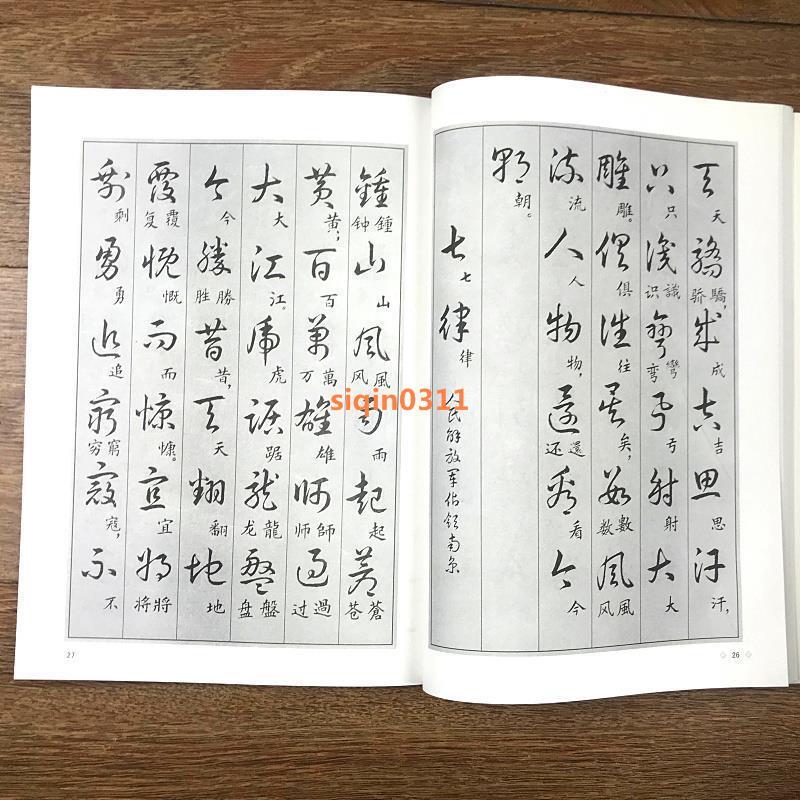 天驕成吉思汗
天 骄驕, 成 吉 思 汗,
只識彎弓射大
只 识識 弯彎 弓 射 大
雕俱往矣數風
雕。 俱 往 矣, 数數 风風
流人物還看今
流 人 物, 还還 看 今
朝
朝。
七律 人民解放军佔领南京
七 律
26
鍾山風雨起蒼
钟鍾 山 风風 雨 起 苍蒼
黄百萬雄師過
黄, 百 万萬 雄 师師 过過
大江虎踞龍盤
大 江。 虎 踞 龙龍 盘盤
今勝昔天翻地
今 胜勝 昔, 天 翻 地
覆慨而慷宜將
复覆 慨 而 慷。 宜 将將
剩勇追窮寇不
剩 勇 追 穷窮 寇, 不
27
siqin0311